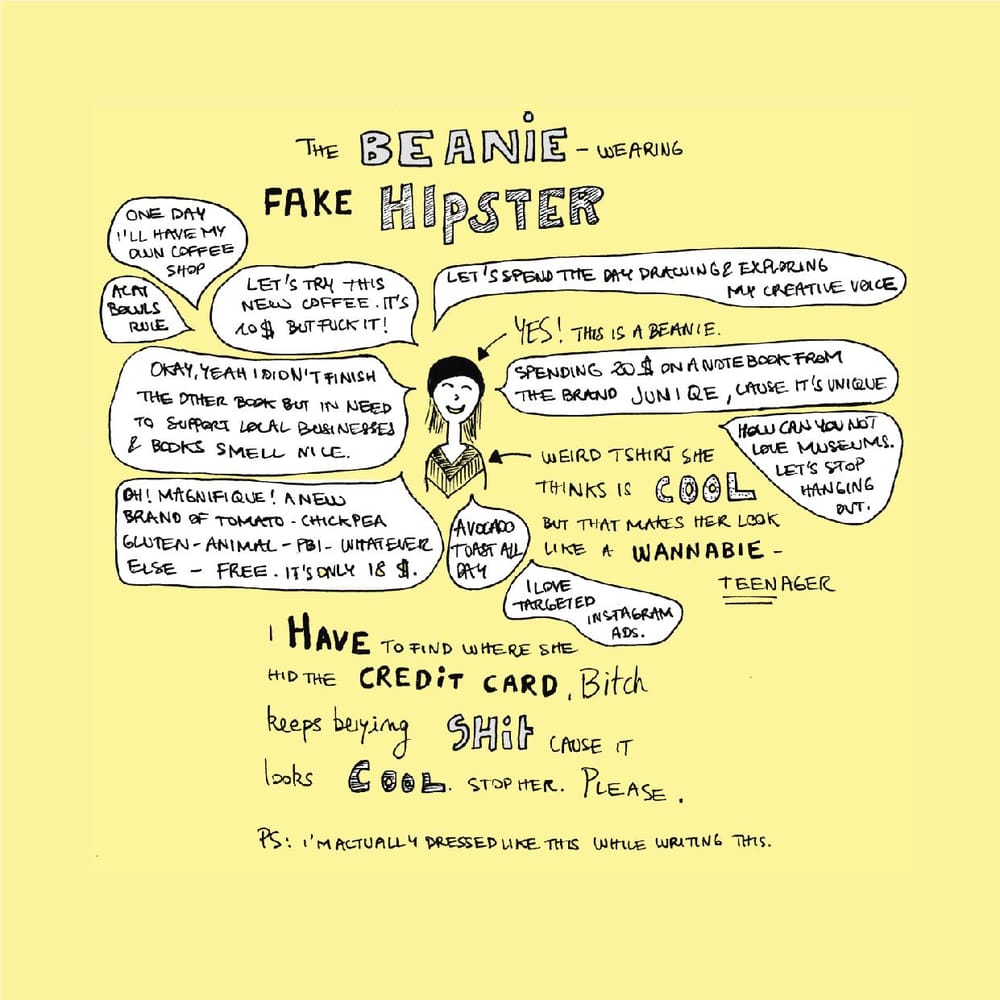 THE BEANIE - WEARING
FAKE HIPSTER
ONE DAY
I'LL HAVE MY
OWN COFFEE
SHOP
ACAI
BOWLS
RULE
LET'S TRY THIS
NEW COFFEE. IT'S
10$ BUT FUCK IT!
LET'S SPEND THE DAY DRAWING & EXPLORING
MY CREATIVE VOICE
YES! THIS IS A BEANIE.
OKAY, YEAH I DIDN'T FINISH
THE OTHER BOOK BUT IN NEED
TO SUPPORT LOCAL BUSINESSES
& BOOKS SMELL NICE.
SPENDING 20$ ON A NOTEBOOK FROM
THE BRAND JUNIQE, CAUSE IT'S UNIQUE
HOW CAN YOU NOT
LOVE MUSEUMS.
LET'S STOP
HANGING
OUT.
WEIRD TSHIRT SHE
THINKS IS COOL
BUT THAT MAKES HER LOOK
LIKE A WANNABIE -
TEENAGER
OH! MAGNIFIQUE! A NEW
BRAND OF TOMATO - CHICKPEA
GLUTEN - ANIMAL - PBI - WHATEVER
ELSE - FREE. IT'S ONLY 18 $.
AVOCADO
TOAST ALL
DAY
I LOVE
TARGETED
INSTAGRAM
ADS.
I HAVE TO FIND WHERE SHE
HID THE CREDIT CARD, Bitch
keeps buying SHit CAUSE IT
looks COOL. STOP HER. PLEASE.
PS: I'M ACTUALLY DRESSED LIKE THIS WHILE WRITING THIS.